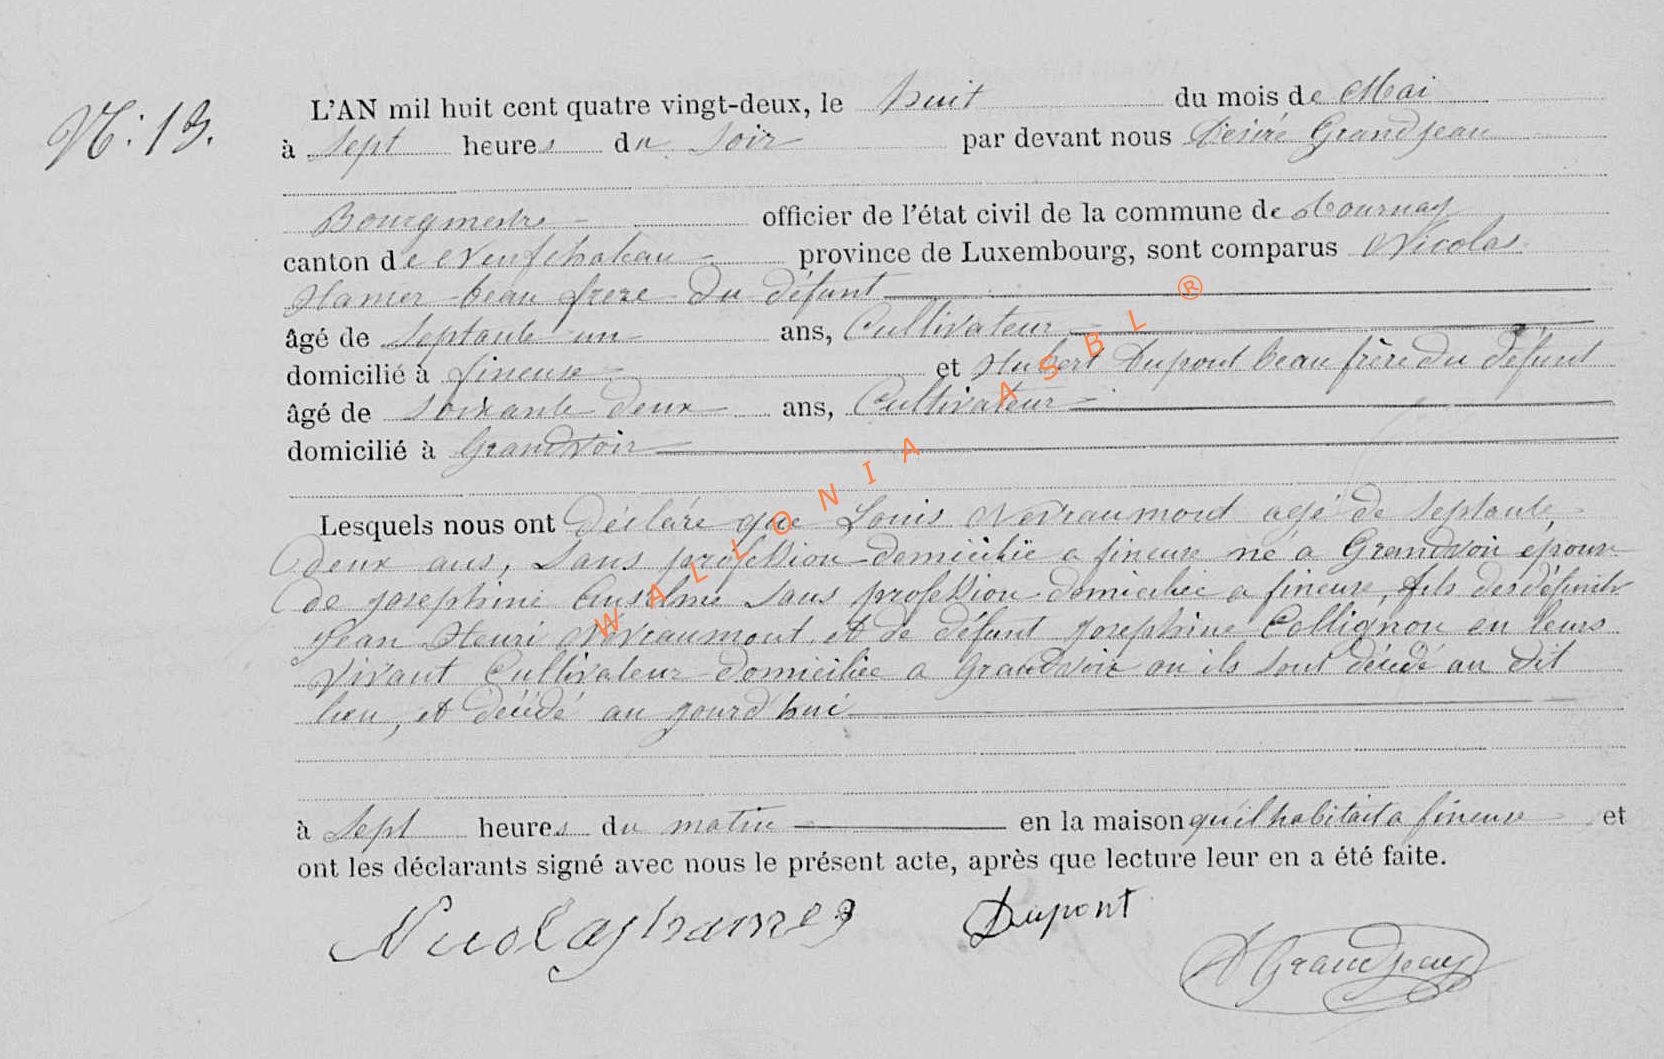 N: 13.
L'AN mil huit cent quatre vingt-deux, le huit du mois de Mai
à Sept heures du Soir par devant nous Désiré Grandjean
Bourgmestre officier de l'état civil de la commune de Tournay
canton de Neufchateau province de Luxembourg, sont comparus Nicolas
Hamer beau frere du défunt
âgé de Septante un ans, Cultivateur
domicilié à fineuse et Hubert Dupont beau frère du défunt
âgé de Soixante deux ans, Cultivateur
domicilié à Grandvoir
Lesquels nous ont déclaré que Louis Nevraumont agé de Septante,
deux ans, Sans profession domicilié a fineuse né a Grandvoir epoux
de josephine Anselme Sans profession domicilieé a fineuse, fils des défunts
Jean Henri Nevraumont et de défunt josephine Collignon en leurs
vivant Cultivateur domiciliée a Grandvoir ou ils sont décédé au dit
lieu, et décédé au jourd'hui
à Sept heures du matin en la maison qu'il habitait a fineuse et
ont les déclarants signé avec nous le présent acte, après que lecture leur en a été faite.
Nicolas hamer Dupont
D Grandjean
WALLONIA ASBL ®